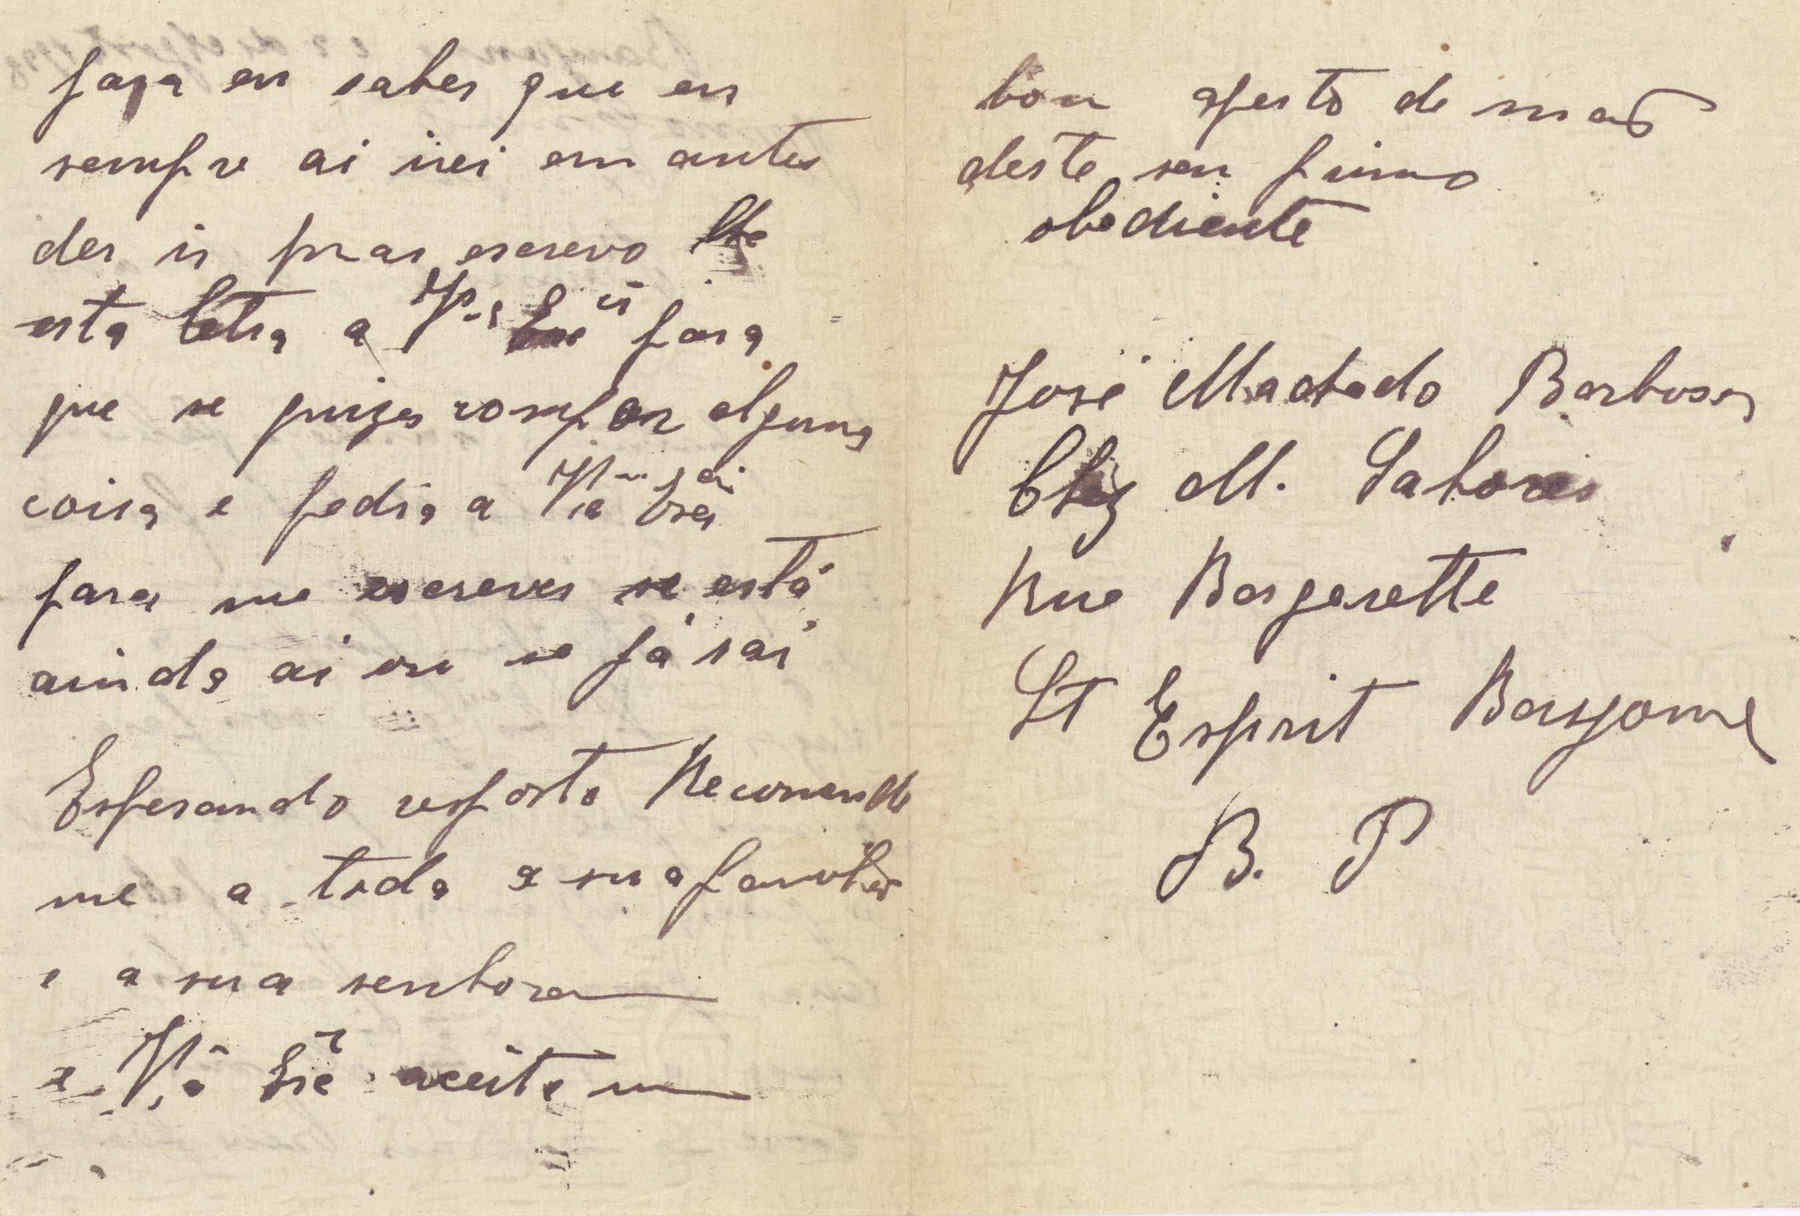 para eu saber que eu
sempre ai irei em antes
der ir pras escrevo lhe
esta letra a V. Exª para
que se quizer romper alguma
coisa e pedia a Vª Exª
para me escrever se está
ainda ai ou se já sai
Esperando resposta Recomende
me a toda a sua familia
e a sua senhora
e Vª Exª aceite um
bon aperto de maõ
deste seu primo
obediente
José Machado Barbosa
Chez M. Labores
Rue Bergerette
St Esprit Bayonne
B. P